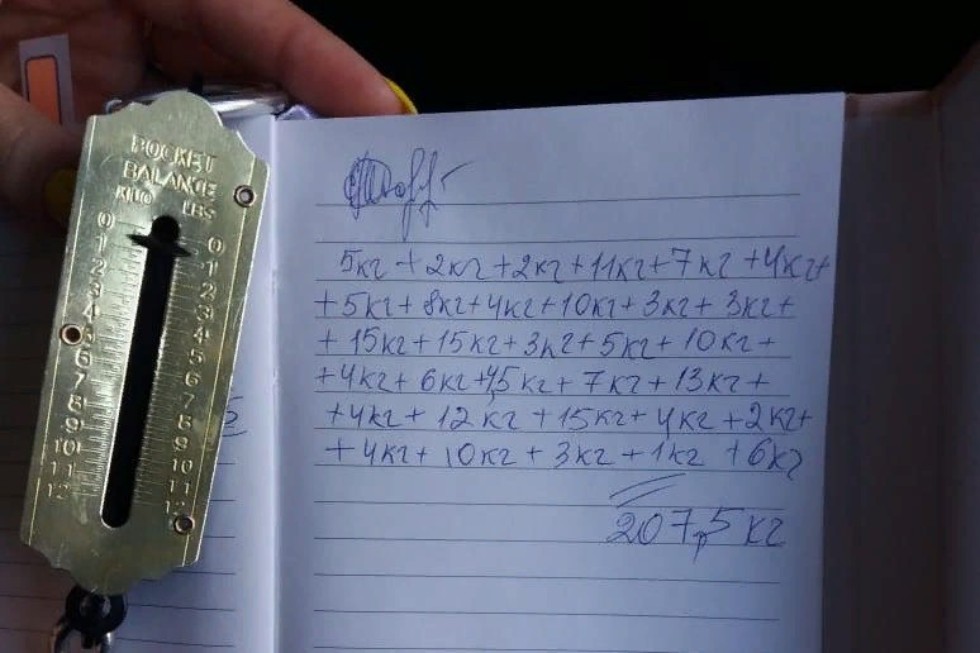 POCKET
BALANCE
KILO LBS
0 0
1 1
2 2
3 3
4 4
5 5
6 6
7 7
8 8
9 9
10 10
11 11
12 12
5кг + 2кг + 2кг + 11кг + 7кг + 4кг +
+ 5кг + 8кг + 4кг + 10кг + 3кг + 3кг +
+ 15кг + 15кг + 3кг + 5кг + 10кг +
+ 4кг + 6кг + 4,5кг + 7кг + 13кг +
+ 4кг + 12кг + 15кг + 4кг + 2кг +
+ 4кг + 10кг + 3кг + 1кг + 6кг
207,5 кг